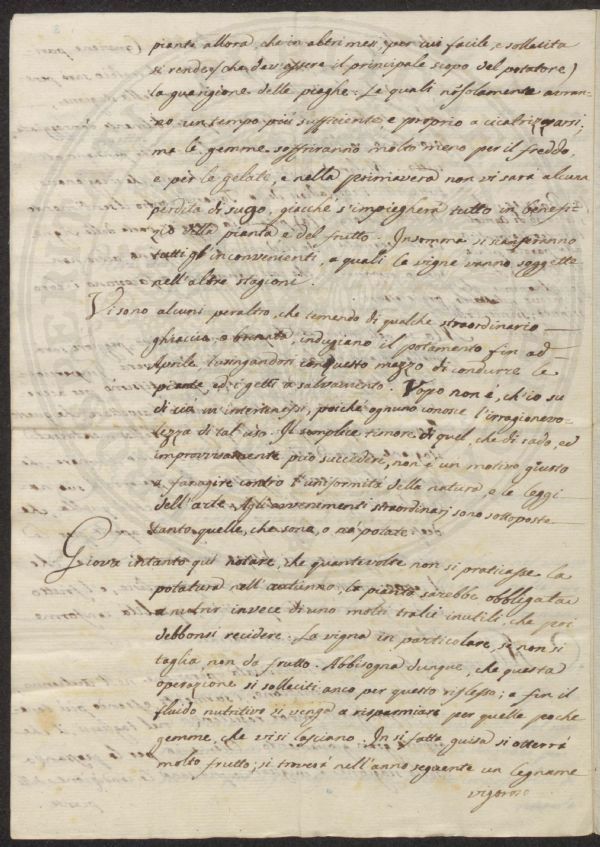 piante allora, che in altri mesi, per cui facile, e sollecita
si rende (che dev'essere il principale scopo del potatore)
la guarigione delle piaghe. Le quali nõ solamente avran-
no un tempo più sufficiente, e proprio a cicatrizzarsi,
ma le gemme soffriranno molto meno per il freddo,
e per le gelate, e nella primavera non vi sarà alcuna
perdita di sugo, giacchè s'impiegherà tutto in benefi-
zio della pianta e del frutto. Insomma si scanseranno
tutti gl'inconvenienti, a quali le vigne vanno soggette
nell'altre stagioni.
Vi sono alcuni peraltro, che temendo di qualche straordinario
ghiaccio, o brinata, indugiano il potamento fin ad
Aprile lusingandosi con questo mezzo di condurre le
piante, ed i getti a salvamento. Uopo non è, ch'io su
di ciò m'intertenessi, poichè ognuno conosce l'irragionevo-
lezza di tal uso. Il semplice timore di quel, che di rado, ed
improvvisamente può succedere, non è un motivo giusto
a far agire contro l'uniformità della natura, e le leggi
dell'arte. Agli avvenimenti straordinarj sono sottoposte
tanto quelle, che sono, o nõ potate.
Giova intanto quì notare, che quantevolte non si praticasse la
potatura nell'autunno, la pianta sarebbe obbligata
a nutrir invece di uno molti tralci inutili, che poi
debbonsi recidere. La vigna in particolare, se non si
taglia non dà frutto. Abbisogna dunque, che questa
operazione si solleciti anco per questo riflesso; a fin il
fluido nutritivo si venga a risparmiare per quelle poche
gemme, che vi si lasciano. In sì fatta guisa si otterrà
molto frutto; si troverà nell'anno seguente un legname
vigoroso